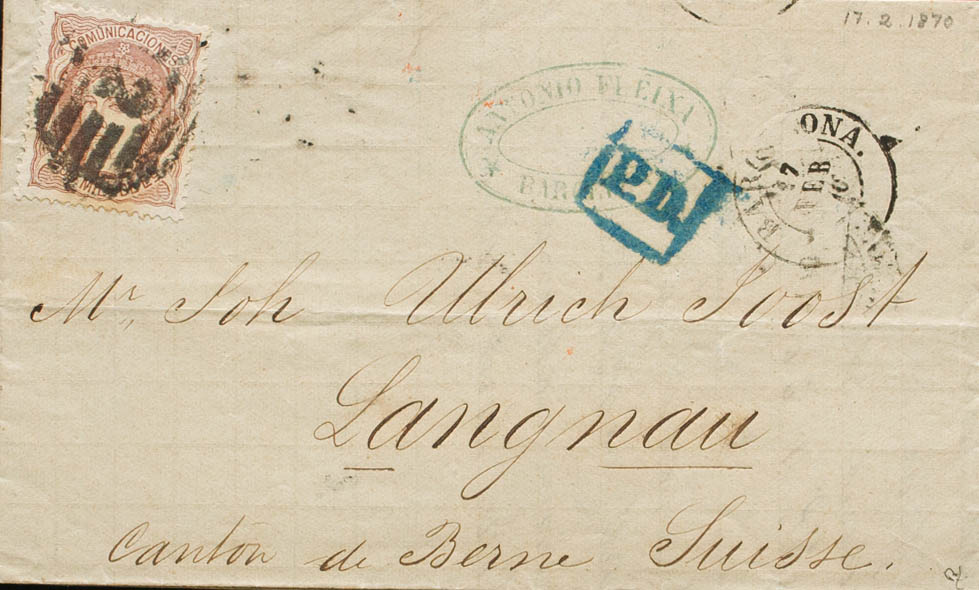 17.2.1870
COMUNICACIONES
ANTONIO FLEIXA
P.D.
BARCELONA.
17
FEB
Mr. Joh Ulrich Joost
Langnau
Canton de Berne Suisse.